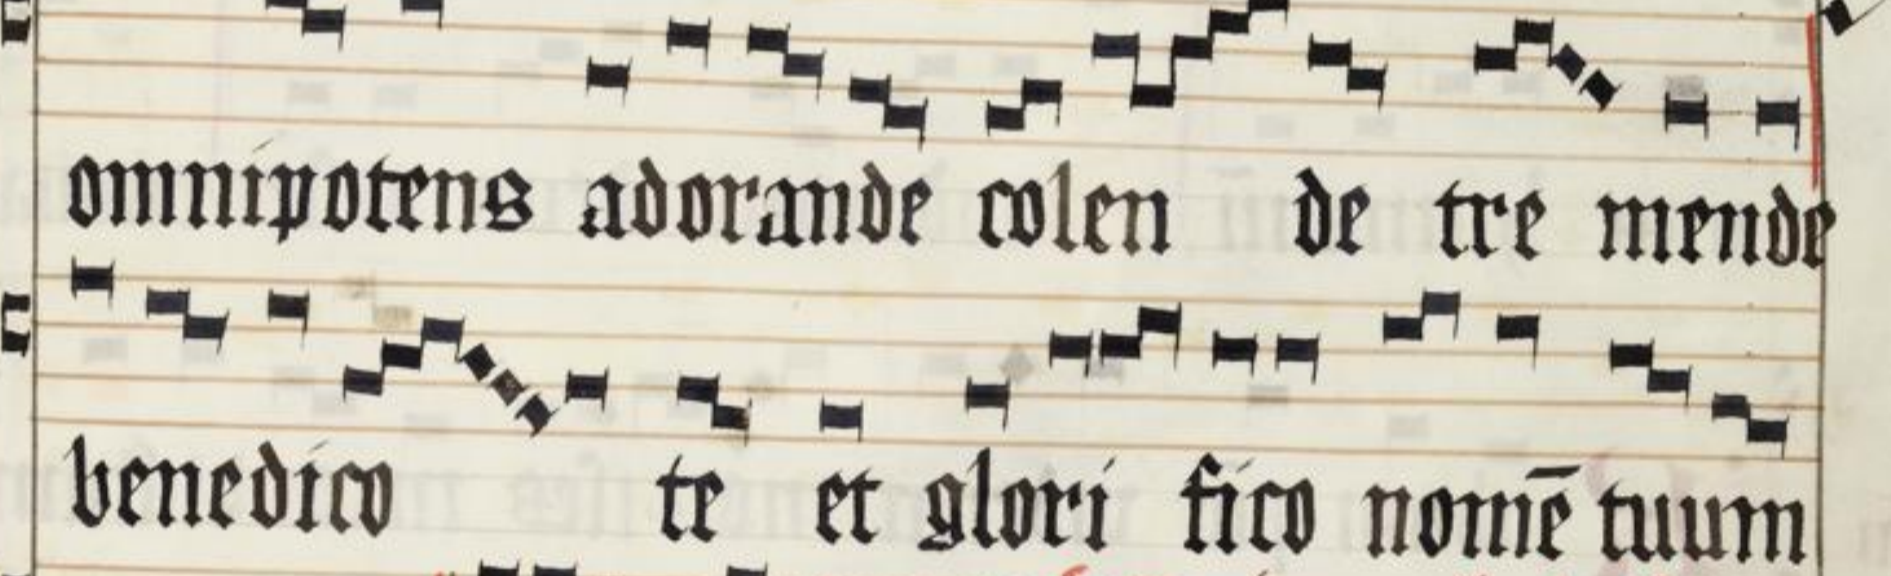 omnipotens adorande colen de tre mende
benedico te et glori fico nomē tuum